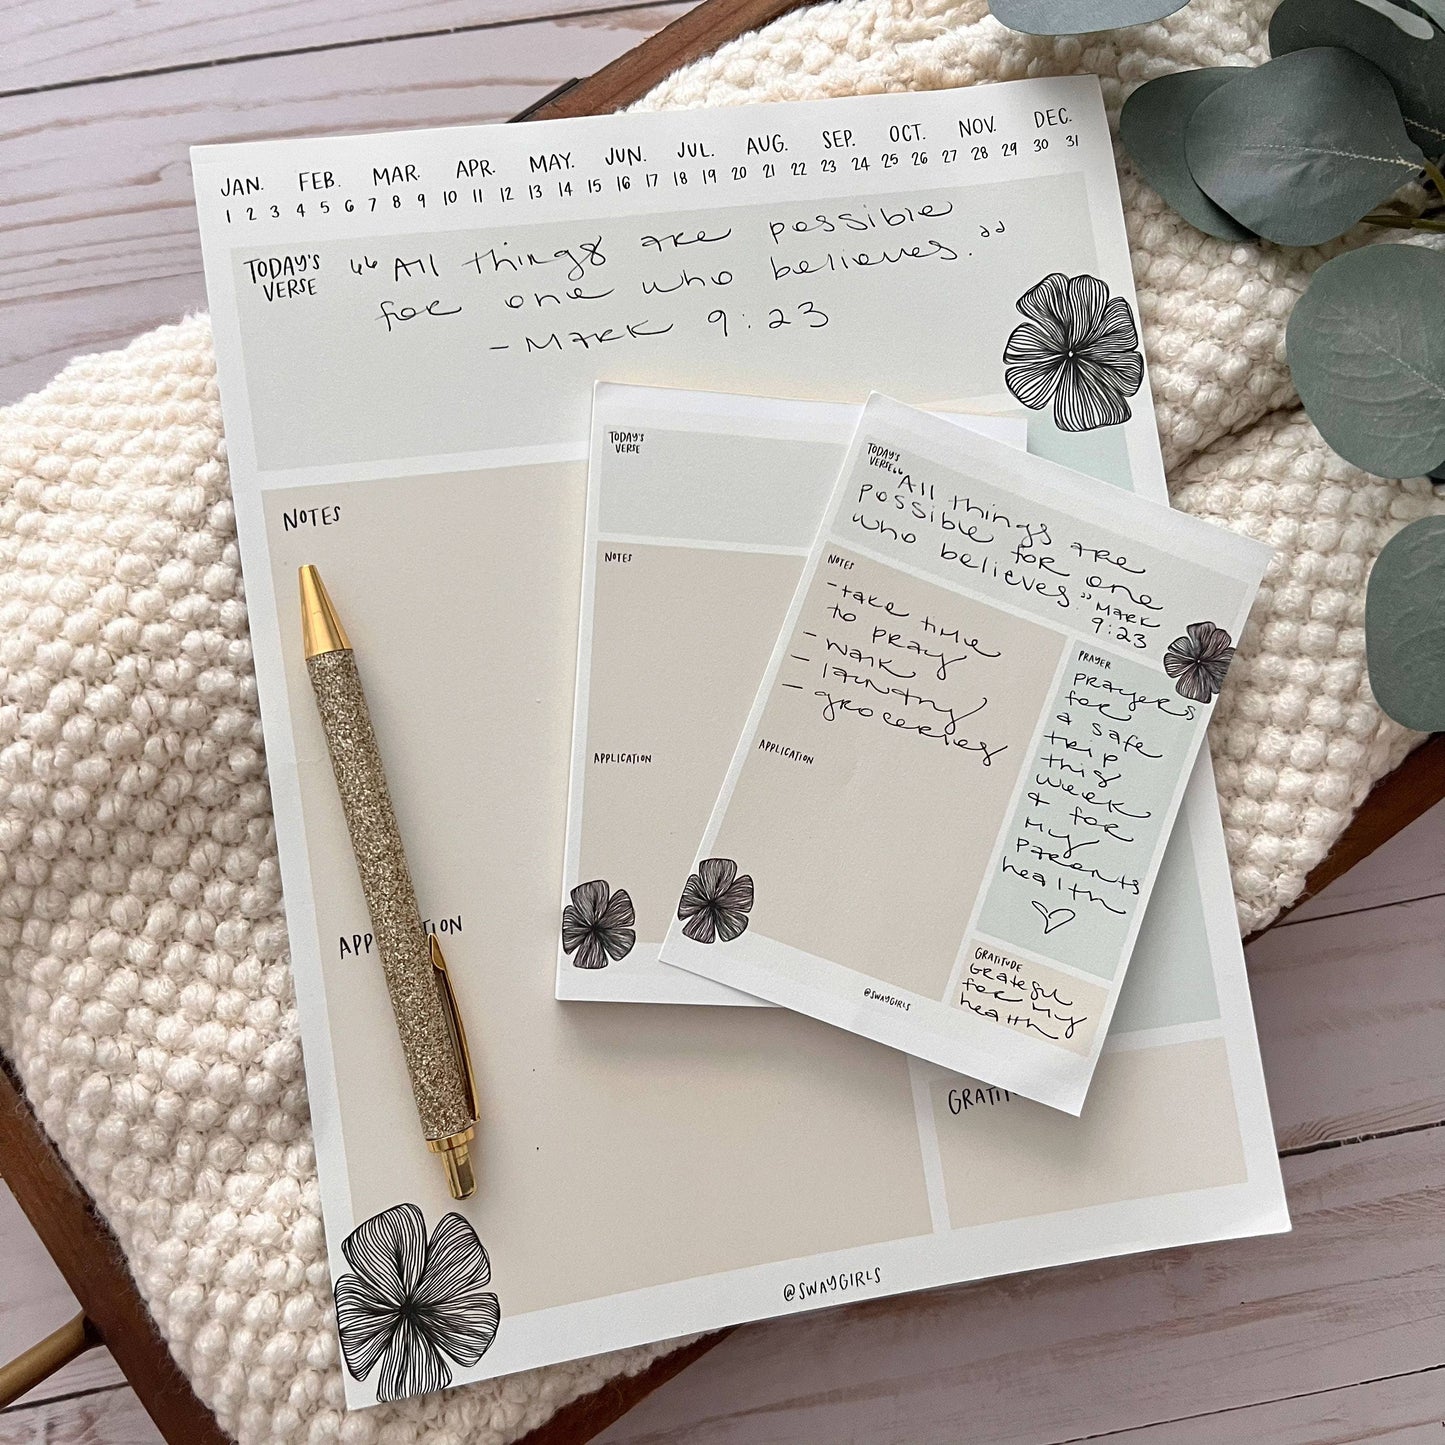 JAN. FEB. MAR. APR. MAY. JUN. JUL. AUG. SEP. OCT. NOV. DEC.
1 2 3 4 5 6 7 8 9 10 11 12 13 14 15 16 17 18 19 20 21 22 23 24 25 26 27 28 29 30 31
TODAY'S
VERSE
"All things are possible
for one who believes."
- MARK 9:23
NOTES
APPLICATION
GRATI
@SWAYGIRLS
TODAY'S
VERSE
NOTES
APPLICATION
TODAY'S
VERSE
"All things are
possible for one
who believes."
MARK
9:23
NOTES
- take time
to pray
- walk
- laundry
- groceries
APPLICATION
PRAYER
prayers
for
a safe
trip
this
week
& for
my
parents
health
GRATITUDE
Grateful
for my
health
@SWAYGIRLS